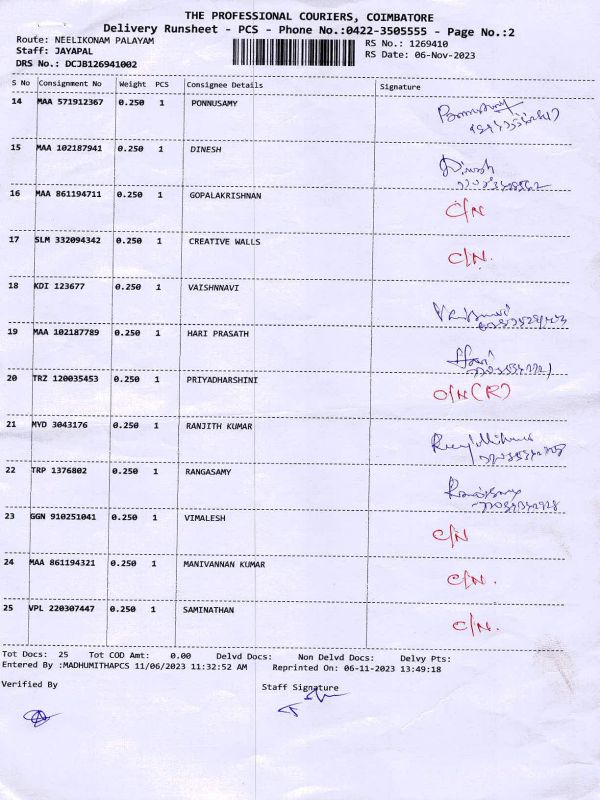 THE PROFESSIONAL COURIERS, COIMBATORE
Delivery Runsheet - PCS - Phone No.:0422-3505555 - Page No.:2
Route: NEELIKONAM PALAYAM RS No.: 1269410
Staff: JAYAPAL RS Date: 06-Nov-2023
DRS No.: DCJB126941002
S No Consignment No Weight PCS Consignee Details Signature
14 MAA 571912367 0.250 1 PONNUSAMY
15 MAA 102187941 0.250 1 DINESH Dinesh
16 MAA 861194711 0.250 1 GOPALAKRISHNAN C/N
17 SLM 332094342 0.250 1 CREATIVE WALLS C/N.
18 KDI 123677 0.250 1 VAISHNNAVI
19 MAA 102187789 0.250 1 HARI PRASATH Hari
20 TRZ 120035453 0.250 1 PRIYADHARSHINI O/N (R)
21 MYD 3043176 0.250 1 RANJITH KUMAR
22 TRP 1376802 0.250 1 RANGASAMY
23 GGN 910251041 0.250 1 VIMALESH C/N
24 MAA 861194321 0.250 1 MANIVANNAN KUMAR C/N.
25 VPL 220307447 0.250 1 SAMINATHAN C/N.
Tot Docs: 25 Tot COD Amt: 0.00 Delvd Docs: Non Delvd Docs: Delvy Pts:
Entered By :MADHUMITHAPCS 11/06/2023 11:32:52 AM Reprinted On: 06-11-2023 13:49:18
Verified By Staff Signature